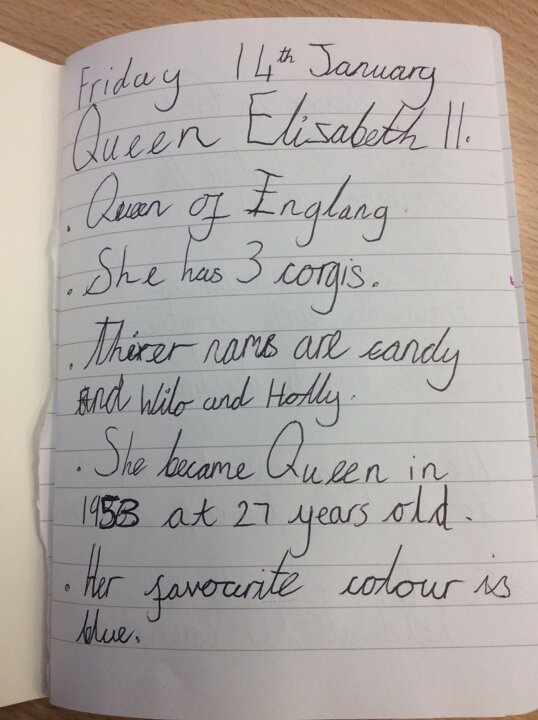 Friday 14th January
Queen Elisabeth II.
. Queen of Englang
. She has 3 corgis.
. thirer nams are candy
and Wilo and Holly.
. She became Queen in
1953 at 27 years old.
. Her favourite colour is
blue.